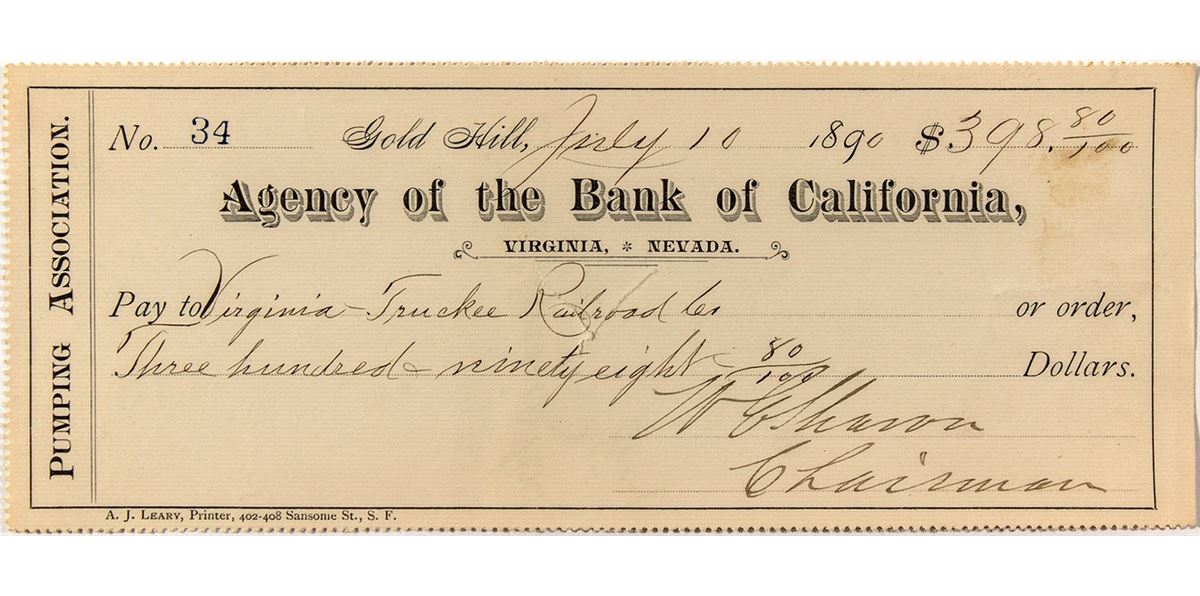 PUMPING ASSOCIATION.
No. 34 Gold Hill, July 10 1890 $398. 80/100
Agency of the Bank of California,
VIRGINIA, * NEVADA.
Pay to Virginia & Truckee Railroad Co or order,
Three hundred & ninety eight 80/100 Dollars.
W E Sharon
Chairman
A. J. LEARY, Printer, 402-408 Sansome St., S. F.